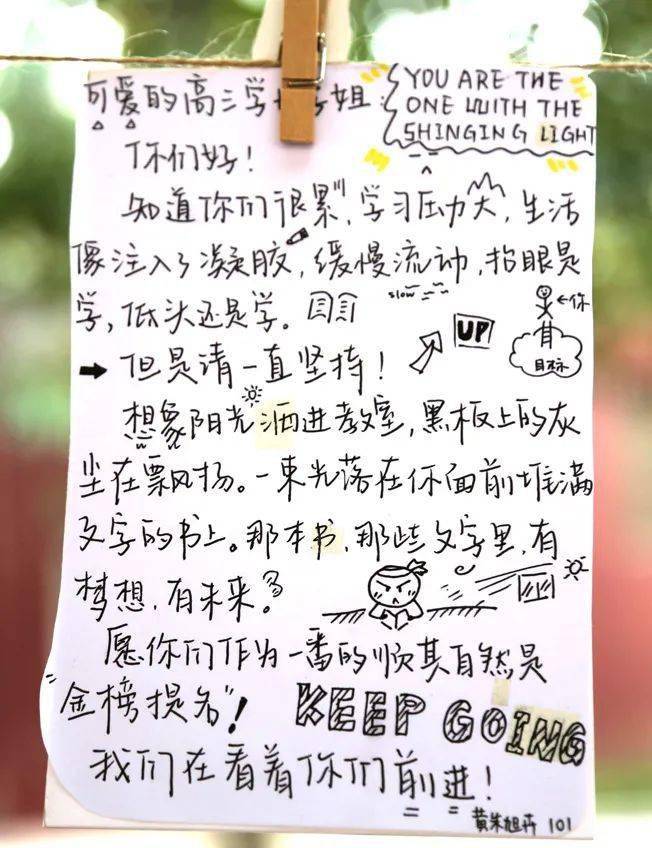 可爱的高三学 姐：
YOU ARE THE
ONE WITH THE
SHINGING LIGHT
你们好！
知道你们很"累"，学习压力大，生活
像注入了凝胶，缓慢流动，抬眼是
slow
学，低头还是学。
UP
←你
目标
→但是请一直坚持！
想象阳光洒进教室，黑板上的灰
尘在飘扬。一束光落在你面前堆满
文字的书上。那本书，那些文字里，有
梦想，有未来。
愿你们作为一番的顺其自然是
"金榜提名"！
KEEP GOING
我们在看着你们前进！
101